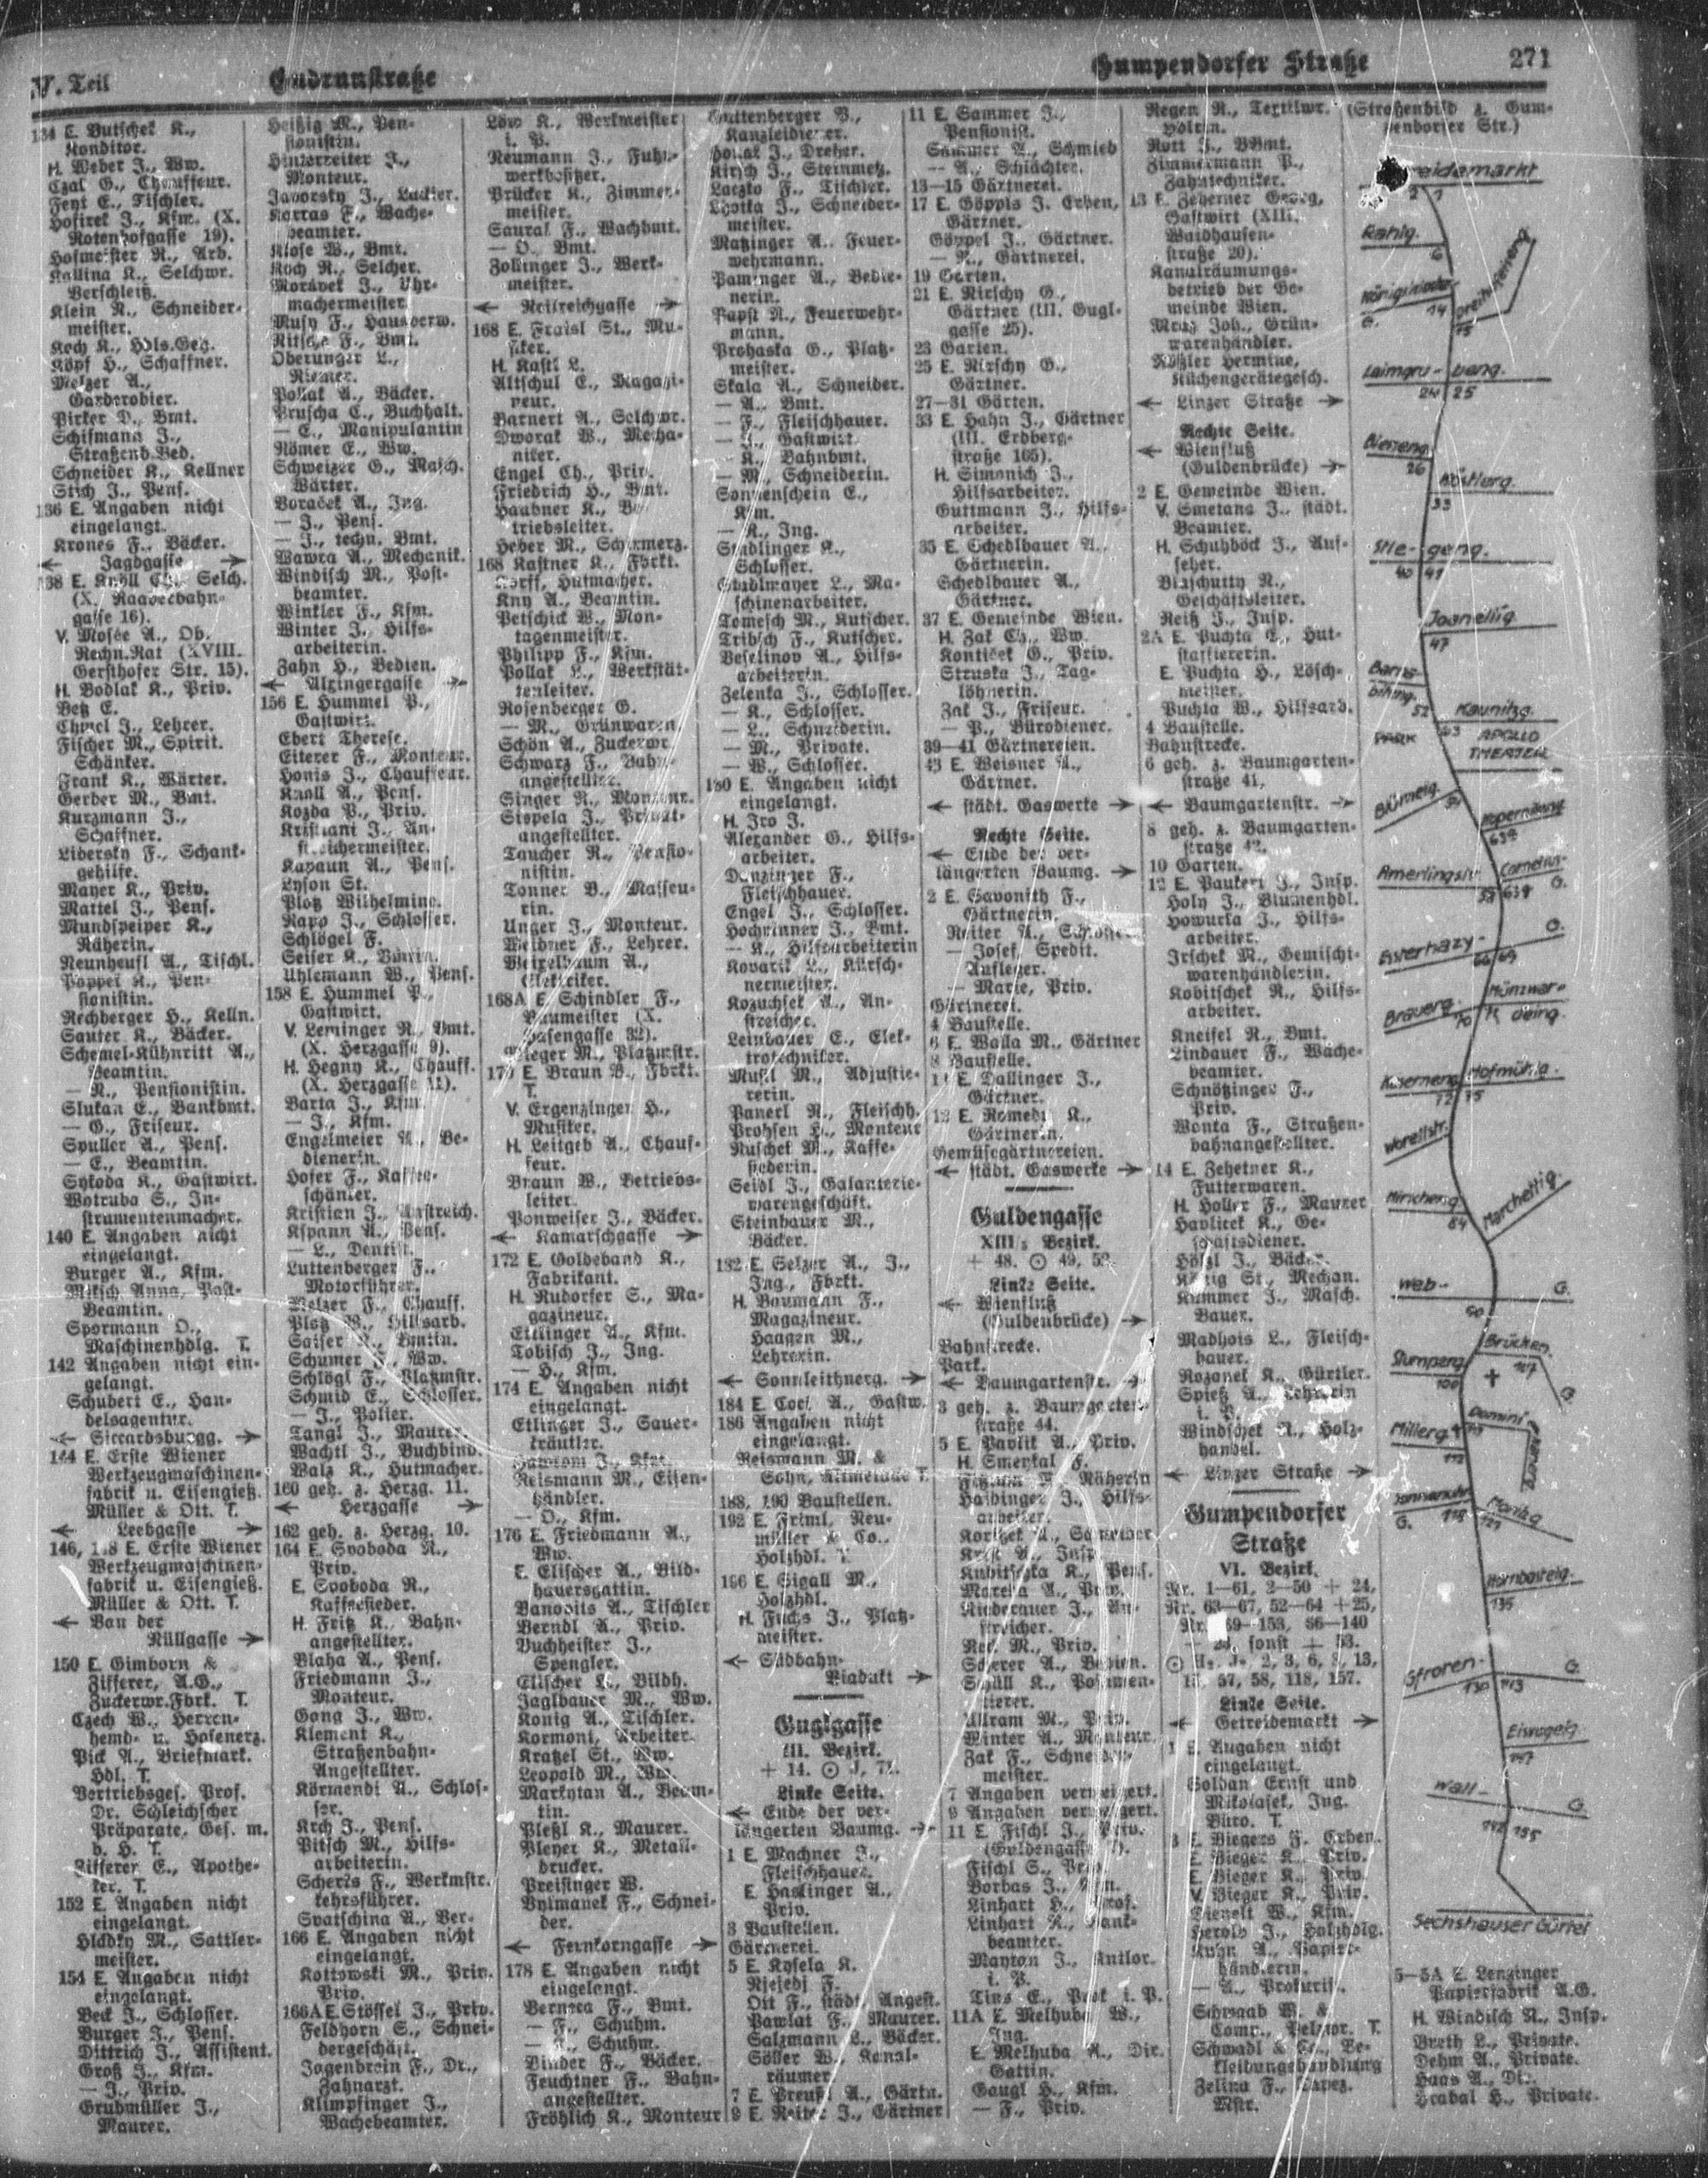 V. Teil
Gudrunstraße
Gumpendorfer Straße
271
134 E. Butschek K.,
Konditor.
H. Weber J., Ww.
Czal G., Chauffeur.
Feyt E., Tischler.
Hofirek J., Kfm. (X.
Rotenhofgasse 19).
Hofmeister R., Arb.
Kallina K., Selchwr.
Verschleiß.
Klein R., Schneider-
meister.
Koch K., Hdls.Geg.
Köpf H., Schaffner.
Melzer A.,
Garderobier.
Pirker D., Bmt.
Schifmann J.,
Straßenb.Bed.
Schneider K., Kellner
Stich J., Pens.
136 E. Angaben nicht
eingelangt.
Krones F., Bäcker.
← Jagdgasse →
138 E. Knöll Ch., Selch.
(X. Raaberbahn-
gasse 16).
V. Mosée A., Ob.
Rechn.Rat (XVIII.
Gersthofer Str. 15).
H. Bodlak K., Priv.
Betz E.
Chmel J., Lehrer.
Fischer M., Spirit.
Schänker.
Frank K., Wärter.
Gerber M., Bmt.
Kurzmann J.,
Schaffner.
Libersky F., Schank-
gehilfe.
Mayer K., Priv.
Mattel J., Pens.
Mundspeiper K.,
Näherin.
Neunheusl A., Tischl.
Pöppel K., Pen-
sionistin.
Rechberger H., Kelln.
Sauter K., Bäcker.
Schemel-Kühnritt A.,
Beamtin.
— R., Pensionistin.
Slukan E., Bankbmt.
— G., Friseur.
Spuller A., Pens.
— E., Beamtin.
Sykoda K., Gastwirt.
Wotruba S., In-
strumentenmacher.
140 E. Angaben nicht
eingelangt.
Burger A., Kfm.
Miksch Anna, Post-
Beamtin.
Spormann O.,
Maschinenhdlg. T.
142 Angaben nicht ein-
gelangt.
Schubert E., Han-
delsagentur.
← Siccardsburgg. →
144 E. Erste Wiener
Werkzeugmaschinen-
fabrik u. Eisengieß.
Müller & Ott. T.
← Leebgasse →
146, 148 E. Erste Wiener
Werkzeugmaschinen-
fabrik u. Eisengieß.
Müller & Ott. T.
← Van der
Nüllgasse →
150 E. Gimborn &
Zifferer, A.G.,
Zuckerwr.Fbrk. T.
Czech W., Herren-
hemd- u. Hosenerz.
Pick A., Briefmark.
Hdl. T.
Vertriebsges. Prof.
Dr. Schleichscher
Präparate, Ges. m.
b. H. T.
Zifferer E., Apothe-
ker. T.
152 E. Angaben nicht
eingelangt.
Hladky M., Sattler-
meister.
154 E. Angaben nicht
eingelangt.
Beck J., Schlosser.
Burger J., Pens.
Dittrich J., Assistent.
Groß J., Kfm.
— J., Priv.
Grubmüller J.,
Maurer.
Heißig M., Pen-
sionistin.
Hinterreiter J.,
Monteur.
Javorsky J., Lackier.
Karras F., Wache-
beamter.
Klose W., Bmt.
Koch R., Selcher.
Moravek J., Uhr-
machermeister.
Musy F., Hausverw.
Nitsche F., Bmt.
Oberunger L.,
Riemer.
Pollak A., Bäcker.
Pruscha C., Buchhalt.
— E., Manipulantin
Römer E., Ww.
Schweizer G., Masch.
Wärter.
Voraček A., Ing.
— J., Pens.
— J., techn. Bmt.
Wawra A., Mechanik.
Windisch M., Post-
beamter.
Winkler F., Kfm.
Winter J., Hilfs-
arbeiterin.
Zahn H., Bedien.
← Alxingergasse →
156 E. Hummel P.,
Gastwirt.
Ebert Therese.
Eiterer F., Monteur.
Honis J., Chauffeur.
Knoll A., Pens.
Kozda P., Priv.
Kristiani J., An-
streichermeister.
Kapaun A., Pens.
Lyson St.
Plotz Wilhelmine.
Rapo J., Schlosser.
Schlögel F.
Seiser K.,
Uhlemann W., Pens.
158 E. Hummel P.,
Gastwirt.
V. Leminger R., Bmt.
(X. Herzgasse 9).
H. Hegny K., Chauff.
(X. Herzgasse 11).
Barta J., Kfm.
— J., Kfm.
Engelmeier A., Be-
dienerin.
Hofer F., Kaffee-
schänker.
Kristian J., Anstreich.
Kspann A., Pens.
— L., Dentist.
Luttenberger F.,
Motorführer.
Melzer F., Chauff.
Plotz W., Hilfsarb.
Saiser, Bmtin.
Schumer, Ww.
Schlögl F., Platzmstr.
Schmid E., Schlosser.
— J., Polier.
Tangl J., Maurer.
Wachtl J., Buchbind.
Walz K., Hutmacher.
160 geh. z. Herzg. 11.
← Herzgasse →
162 geh. z. Herzg. 10.
164 E. Svoboda R.,
Priv.
E. Svoboda R.,
Kaffeesieder.
H. Fritz K., Bahn-
angestellter.
Blaha A., Pens.
Friedmann J.,
Monteur.
Gong J., Ww.
Klement K.,
Straßenbahn-
Angestellter.
Körmendi A., Schlos-
ser.
Krch J., Pens.
Pitsch M., Hilfs-
arbeiterin.
Scherks F., Werkmstr.
kehrsführer.
Svatschina A., Ver-
166 E. Angaben nicht
eingelangt.
Koitowski M., Priv.
Priv.
166A E. Stössel J., Priv.
Feldhorn S., Schnei-
dergeschäft.
Jagenbrein F., Dr.,
Zahnarzt.
Klimpfinger J.,
Wachebeamter.
Löw K., Werkmeister
i. P.
Neumann J., Fuhr-
werkbesitzer.
Brücker K., Zimmer-
meister.
Saural F., Wachbmt.
— O., Bmt.
Zollinger J., Werk-
meister.
← Neilreichgasse →
168 E. Fraisl St., Mu-
siker.
H. Kastl L.
Altschul E., Magazi-
neur.
Barnert A., Selchwr.
Dworak W., Mecha-
niker.
Engel Ch., Priv.
Friedrich H., Bmt.
Haubner K., Be-
triebsleiter.
Heber M., Schirmerz.
168 Kastner K., Fbrkt.
Korff, Hutmacher.
Kny A., Beamtin.
Petschick W., Mon-
tagenmeister.
Philipp F., Kfm.
Pollak L., Werkstät-
tenleiter.
Rosenberger G.
— M., Grünwaren
Schön A., Zuckerwr.
Schwarz F., Bahn-
angestellter.
Singer R., Monteur.
Sispela J., Privat-
angestellter.
Taucher R., Pensio-
nistin.
Tonner B., Masseu-
rin.
Unger J., Monteur.
Weidner F., Lehrer.
Weixelbaum A.,
Elektriker.
168A E. Schindler F.,
Baumeister (X.
Hasengasse 32).
Rieger M., Platzmstr.
170 E. Braun B., Fbrkt.
T.
V. Ergenzinger H.,
Musiker.
H. Leitgeb A., Chauf-
feur.
Braun W., Betriebs-
leiter.
Ponweiser J., Bäcker.
← Kamarschgasse →
172 E. Goldeband K.,
Fabrikant.
H. Rudorfer S., Ma-
gazineur.
Ettlinger A., Kfm.
Tobisch J., Ing.
— H., Kfm.
174 E. Angaben nicht
eingelangt.
Ettinger J., Sauer-
kräutler.
Reismann M., Eisen-
händler.
— O., Kfm.
176 E. Friedmann A.,
Ww.
E. Elischer A., Bild-
hauersgattin.
Banovits A., Tischler
Berndl A., Priv.
Buchheister J.,
Spengler.
Elischer L., Bildh.
Jaglbauer M., Ww.
König A., Tischler.
Kormoni, Arbeiter.
Kratzel St., Ww.
Leopold M., Ww.
Markytan A., Beam-
tin.
Pleßl K., Maurer.
Pleyer K., Metall-
drucker.
Preisinger W.
Vylmanek F., Schnei-
der.
← Fernkorngasse →
178 E. Angaben nicht
eingelangt.
Bernsca F., Bmt.
— F., Schuhm.
— F., Schuhm.
Binder F., Bäcker.
Feuchtner F., Bahn-
angestellter.
Fröhlich K., Monteur
Guttenberger B.,
Kanzleidiener.
Houal J., Dreher.
Kirsch J., Steinmetz.
Laczko F., Tischler.
Lhotka J., Schneider-
meister.
Matzinger A., Feuer-
wehrmann.
Paminger A., Bedie-
nerin.
Papst R., Feuerwehr-
mann.
Prohaska G., Platz-
meister.
Skala A., Schneider.
— A., Bmt.
— F., Fleischhauer.
— J., Gastwirt.
— K., Bahnbmt.
— M., Schneiderin.
Sonnenschein E.,
Kfm.
— K., Ing.
Stadlinger K.,
Schlosser.
Stadlmayer L., Ma-
schinenarbeiter.
Tomesch M., Kutscher.
Tribsch F., Kutscher.
Veselinov A., Hilfs-
arbeiterin.
Zelenka J., Schlosser.
— K., Schlosser.
— L., Schneiderin.
— M., Private.
— W., Schlosser.
180 E. Angaben nicht
eingelangt.
H. Iro J.
Alexander G., Hilfs-
arbeiter.
Danzinger F.,
Fleischhauer.
Engel J., Schlosser.
Hochrinner J., Bmt.
— K., Hilfsarbeiterin
Kovarik L., Kürsch-
nermeister.
Kozuchsek A., An-
streicher.
Leinbauer E., Elek-
trotechniker.
Musil M., Adjustie-
rerin.
Panerl R., Fleischh.
Prohsen L., Monteur
Ruschek M., Kaffe-
siederin.
Seidl J., Galanterie-
warengeschäft.
Steinbauer M.,
Bäcker.
182 E. Selzer A., J.,
Ing., Fbrkt.
H. Baumann F.,
Magazineur.
Haagen M.,
Lehrerin.
← Sonnleithnerg. →
184 E. Coel A., Gastw.
186 Angaben nicht
eingelangt.
Reismann M. &
Sohn, Altmetalle T.
188, 190 Baustellen.
192 E. Friml, Neu-
müller & Co.,
Holzhdl. T.
196 E. Sigall M.,
Holzhdl.
H. Fuchs J., Platz-
meister.
← Südbahn-
Viadukt →
Guglgasse
III. Bezirk.
Linke Seite.
← Ende der ver-
längerten Baumg. →
1 E. Machner J.,
Fleischhauer.
E. Haslinger A.,
Priv.
3 Baustellen.
Gärtnerei.
5 E. Kysela K.
Nejedi F.
Ott F., städt. Angest.
Pawlat F., Maurer.
Salzmann L., Bäcker.
Söller W., Kanal-
räumer.
7 E. Preußl A., Gärtn.
9 E. Reiter J., Gärtner
11 E. Sammer J.,
Pensionist.
Sammer A., Schmied
— A., Schlächter.
13—15 Gärtnerei.
17 E. Göppls J. Erben,
Gärtner.
Göppel J., Gärtner.
— R., Gärtnerei.
19 Garten.
21 E. Nirschy G.,
Gärtner (III. Gugl-
gasse 25).
23 Garten.
25 E. Nirschy G.,
Gärtner.
27—31 Gärten.
33 E. Hahn J., Gärtner
(III. Erdberg-
straße 165).
H. Simonich J.,
Hilfsarbeiter.
Guttmann J., Hilfs-
arbeiter.
35 E. Schedlbauer A.,
Gärtnerin.
Schedlbauer A.,
Gärtner.
37 E. Gemeinde Wien.
H. Zak Ch., Ww.
Konticek G., Priv.
Struska J., Tag-
löhnerin.
Zak J., Friseur.
— P., Bürodiener.
39—41 Gärtnereien.
43 E. Weisner A.,
Gärtner.
← städt. Gaswerke →
Rechte Seite.
← Ende der ver-
längerten Baumg. →
2 E. Gavonith F.,
Gärtnerin.
Reiter A., Schlosser
— Josef, Spedit.
Aufleger.
— Marie, Priv.
Gärtnerei.
4 Baustelle.
6 E. Walla M., Gärtner
8 Baustelle.
E. Dallinger J.,
Gärtner.
12 E. Romedi K.,
Gärtnerin.
Gemüsegärtnereien.
← städt. Gaswerke →
Guldengasse
XIII/5 Bezirk.
+ 48. ⊙ 49, 52.
Linke Seite.
← Wienfluß
(Guldenbrücke) →
Bahnstrecke.
Park.
← Baumgartenstr. →
3 geh. z. Baumgarten-
straße 44.
5 E. Pavlik A., Priv.
H. Smerkal F.
Näherin
Haibinger J., Hilfs-
arbeiter.
Schneider
Krist A., Insp.
Kubitschka K., Pens.
Marella A., Priv.
Niederauer J., An-
streicher.
M., Priv.
Scherer A., Bedien.
Schüll K., Posamen-
tierer.
Ullram M., Priv.
Winter A., Monteur.
Zak F., Schneider-
meister.
7 Angaben verweigert.
9 Angaben verweigert.
11 E. Fischl J., Priv.
(Guldengasse
Fischl S., Priv.
Borbas J.,
Linhart H., Prof.
Linhart K., Bank-
beamter.
Manton J., Antlor.
i. P.
Tins E., Prok i. P.
11A E. Melhuba W.,
Ing.
E. Melhuba R., Dir.
Gattin.
Gaugl H., Kfm.
— F., Priv.
Regen R., Textilwr.
Hölrin.
Rott J., BBmt.
Zimmermann P.,
Zahntechniker.
13 E. Zeherner Georg,
Gastwirt (XIII.
Waidhausen-
straße 20).
Kanalräumungs-
betrieb der Ge-
meinde Wien.
Mraz Joh., Grün-
warenhändler.
Rößler Hermine,
Küchengerätegesch.
← Linzer Straße →
Rechte Seite.
← Wienfluß
(Guldenbrücke) →
2 E. Gemeinde Wien.
V. Smetana J., städt.
Beamter.
H. Schuhböck J., Auf-
seher.
Blaschutty R.,
Geschäftsleiter.
Reiß J., Insp.
2A E. Puchta L., Hut-
staffiererin.
E. Puchta H., Lösch-
meister.
Puchta W., Hilfsarb.
4 Baustelle.
Bahnstrecke.
6 geh. z. Baumgarten-
straße 41,
← Baumgartenstr. →
8 geh. z. Baumgarten-
straße 42.
10 Garten.
12 E. Paukert J., Insp.
Holy J., Blumenhdl.
Howurka J., Hilfs-
arbeiter.
Jrschek M., Gemischt-
warenhändlerin.
Kobitschek R., Hilfs-
arbeiter.
Kneifel R., Bmt.
Lindauer F., Wache-
beamter.
Schnötzinger F.,
Priv.
Wonta F., Straßen-
bahnangestellter.
14 E. Zehetner K.,
Futterwaren.
H. Holler F., Maurer
Havlicek K., Ge-
schäftsdiener.
Hölzl J., Bäcker.
König St., Mechan.
Kummer J., Masch.
Bauer.
Madhois L., Fleisch-
hauer.
Rozanek K., Gürtler.
Spieß A., Lehrerin
i. P.
Windschek R., Holz-
handel.
← Linzer Straße →
Gumpendorfer
Straße
VI. Bezirk.
Nr. 1—61, 2—50 + 24,
Nr. 63—67, 52—64 +25,
Nr. 69—153, 66—140
sonst + 53.
57, 58, 118, 157.
Linke Seite.
← Getreidemarkt →
1 E. Angaben nicht
eingelangt.
Goldan Ernst und
Mikolasek, Ing.
Büro. T.
3 E. Biegers F. Erben.
E. Bieger K., Priv.
E. Bieger K., Priv.
V. Bieger K., Priv.
Dienelt W., Kfm.
Herold J., Holzhdlg.
Kuhn A., Papier-
händlerin.
— A., Prokurist.
Schwaab M. &
Comp., Pelzwr. T.
Schwadl & Co., Be-
kleidungshandlung
Zelina F., Tapez.
Mstr.
(Straßenbild z. Gum-
pendorfer Str.)
reidemarkt
2 1
Rahlg.
6
Königskloster-
G. 14
15
Laimgru- beng.
24 25
Bieneng.
26
Köstlerg.
33
Stie- geng.
40 41
Joanellig.
47
Barna-
biteng.
52
Kaunitzg.
63 APOLLO
THEATER
PARK
Blümelg.
Kopernikusg.
63a
Amerlingstr.
Cornelius-
G.
58 63a
Esterhazy- G.
66 69
Brauerg.
70
Münzwar-
deing.
71
Kaserneng.
72
Hofmühlg.
75
Worellstr.
Hirscheng.
84
Marchettig.
Web- G.
90
Brücken
107
G.
Stumperg.
100
+
Millerg.
112
Damini-
kanerg.
G. 118
Moritzg.
121
Hornbostelg.
135
Strohn- G.
130 143
Eisvogelg.
147
Wall- G.
142 155
Sechshauser Gürtel
5—5A E. Lenzinger
Papierfabrik A.G.
H. Windisch R., Insp.
Breth L., Private.
Dehm A., Private.
Haas A., Dir.
Hrabal H., Private.